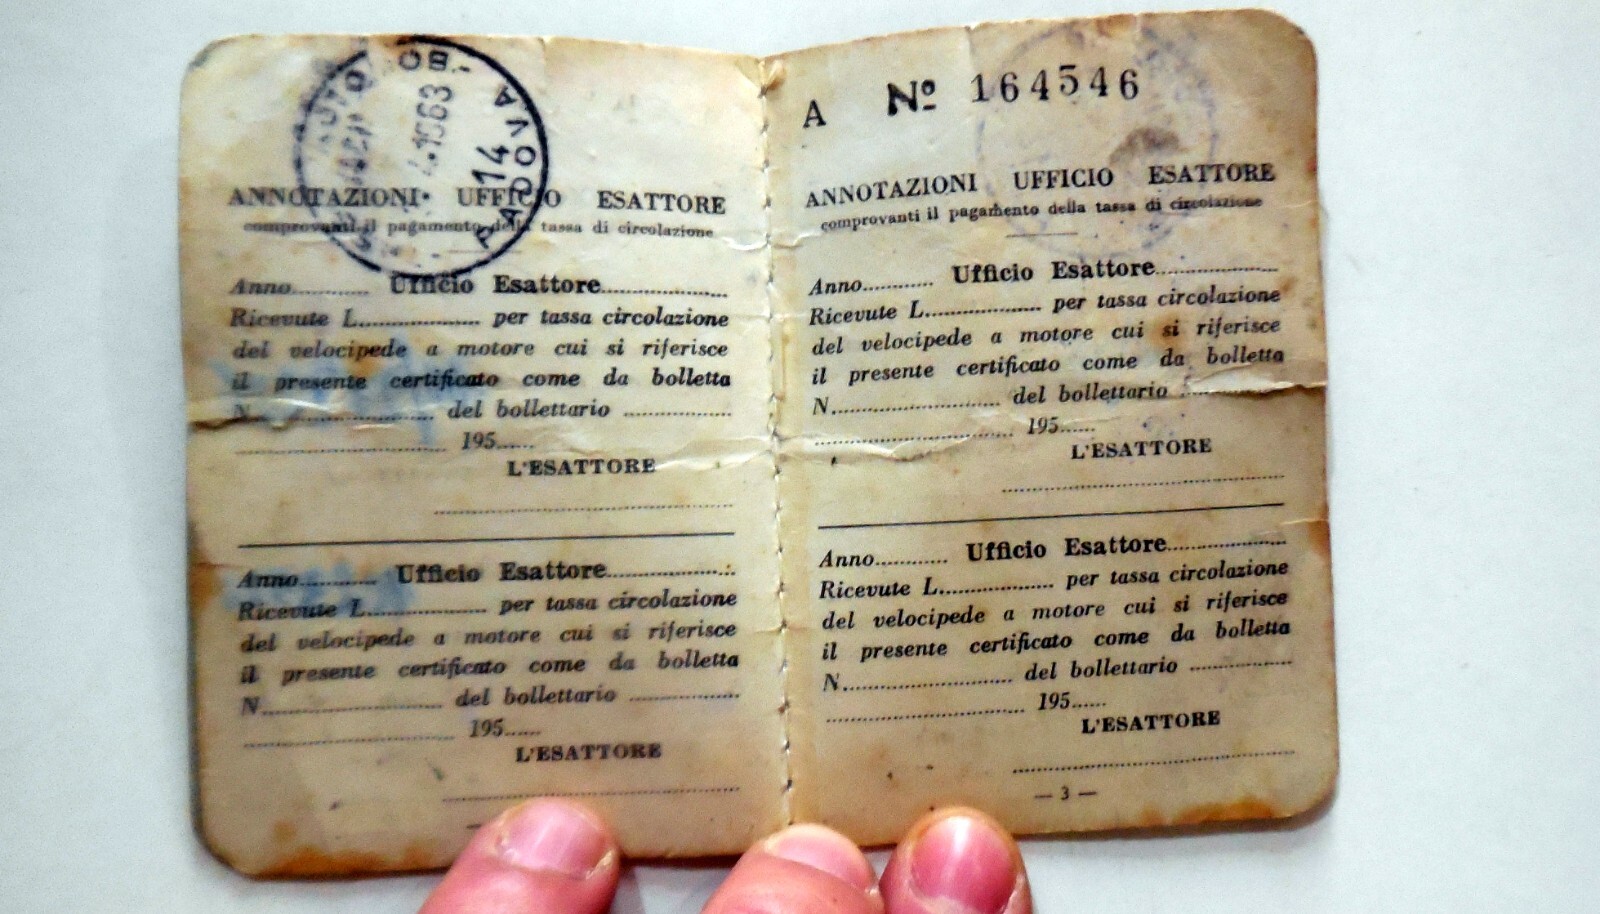 PADOVA
14
ANNOTAZIONI UFFICIO ESATTORE
comprovanti il pagamento della tassa di circolazione
Anno............ Ufficio Esattore....................
Ricevute L................... per tassa circolazione
del velocipede a motore cui si riferisce
il presente certificato come da bolletta
N............................ del bollettario .................
................................ 195......
L'ESATTORE
Anno............ Ufficio Esattore....................
Ricevute L................... per tassa circolazione
del velocipede a motore cui si riferisce
il presente certificato come da bolletta
N............................ del bollettario .................
................................ 195......
L'ESATTORE
A Nº 164546
ANNOTAZIONI UFFICIO ESATTORE
comprovanti il pagamento della tassa di circolazione
Anno............ Ufficio Esattore....................
Ricevute L................... per tassa circolazione
del velocipede a motore cui si riferisce
il presente certificato come da bolletta
N............................ del bollettario .................
................................ 195......
L'ESATTORE
Anno............ Ufficio Esattore....................
Ricevute L................... per tassa circolazione
del velocipede a motore cui si riferisce
il presente certificato come da bolletta
N............................ del bollettario .................
................................ 195......
L'ESATTORE
— 3 —